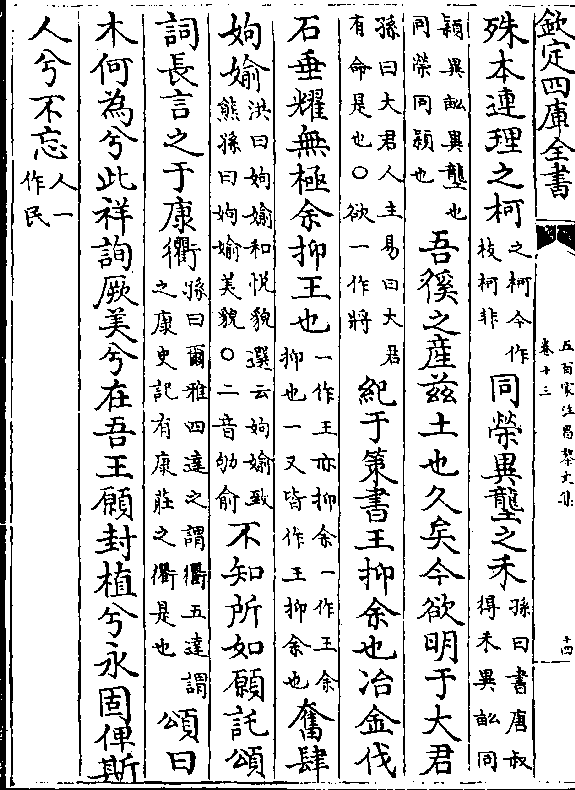 欽定四庫全書
五百家注昌黎文集
卷十三
十四
殊本連理之柯之柯今作枝柯非同榮異壟之禾孫曰書唐叔得禾異畝同
穎異畝異壟也同榮同穎也吾徯之産兹土也久矣今欲明于大君
孫曰大君人主易曰大君有命是也○欲一作將紀于策書王抑余也冶金伐
石垂耀無極余抑王也一作王亦抑余一作王余抑也一又皆作王抑余也奮肆
姁媮洪曰姁媮和悅貌選云姁媮致態孫曰姁媮美貌○二音呴俞不知所如願託頌
詞長言之于康衢孫曰爾雅四達之謂衢五達謂之康史記有康莊之衢是也頌曰
木何為兮此祥詢厥美兮在吾王願封植兮永固俾斯
人兮不忘人一作民